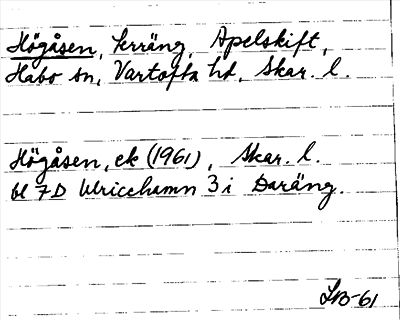 Högåsen, terräng, Apelskift,
Habo sn, Vartofta hd, Skar. l.
Högåsen, ek (1961), Skar. l.
bl 7D Ulricehamn 3i Daräng.
LB-61